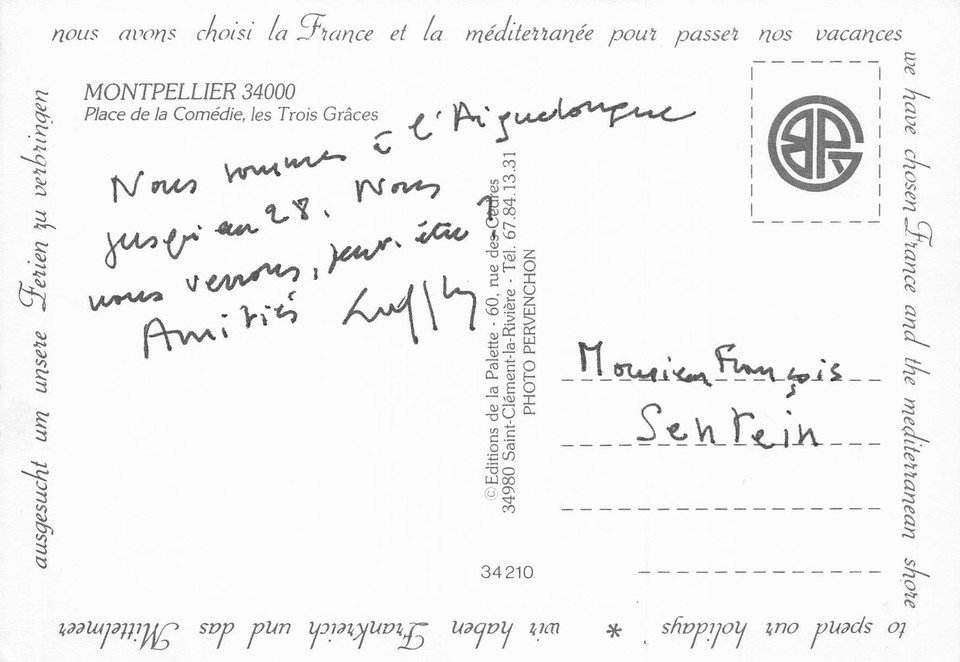 nous avons choisi la France et la méditerranée pour passer nos vacances
we have chosen France and the mediterranean shore
to spend our holidays * wir haben Frankreich und das Mittelmeer
ausgesucht um unsere Ferien zu verbringen
MONTPELLIER 34000
Place de la Comédie, les Trois Grâces
Nous sommes à l'Aiguelongue
jusqu'au 28. Nous
nous verrons, peut-être ?
Amitiés
©Editions de la Palette - 60, rue des Cèdres
34980 Saint-Clément-la-Rivière - Tél. 67.84.13.31
PHOTO PERVENCHON
Monsieur François
Sentein
34210